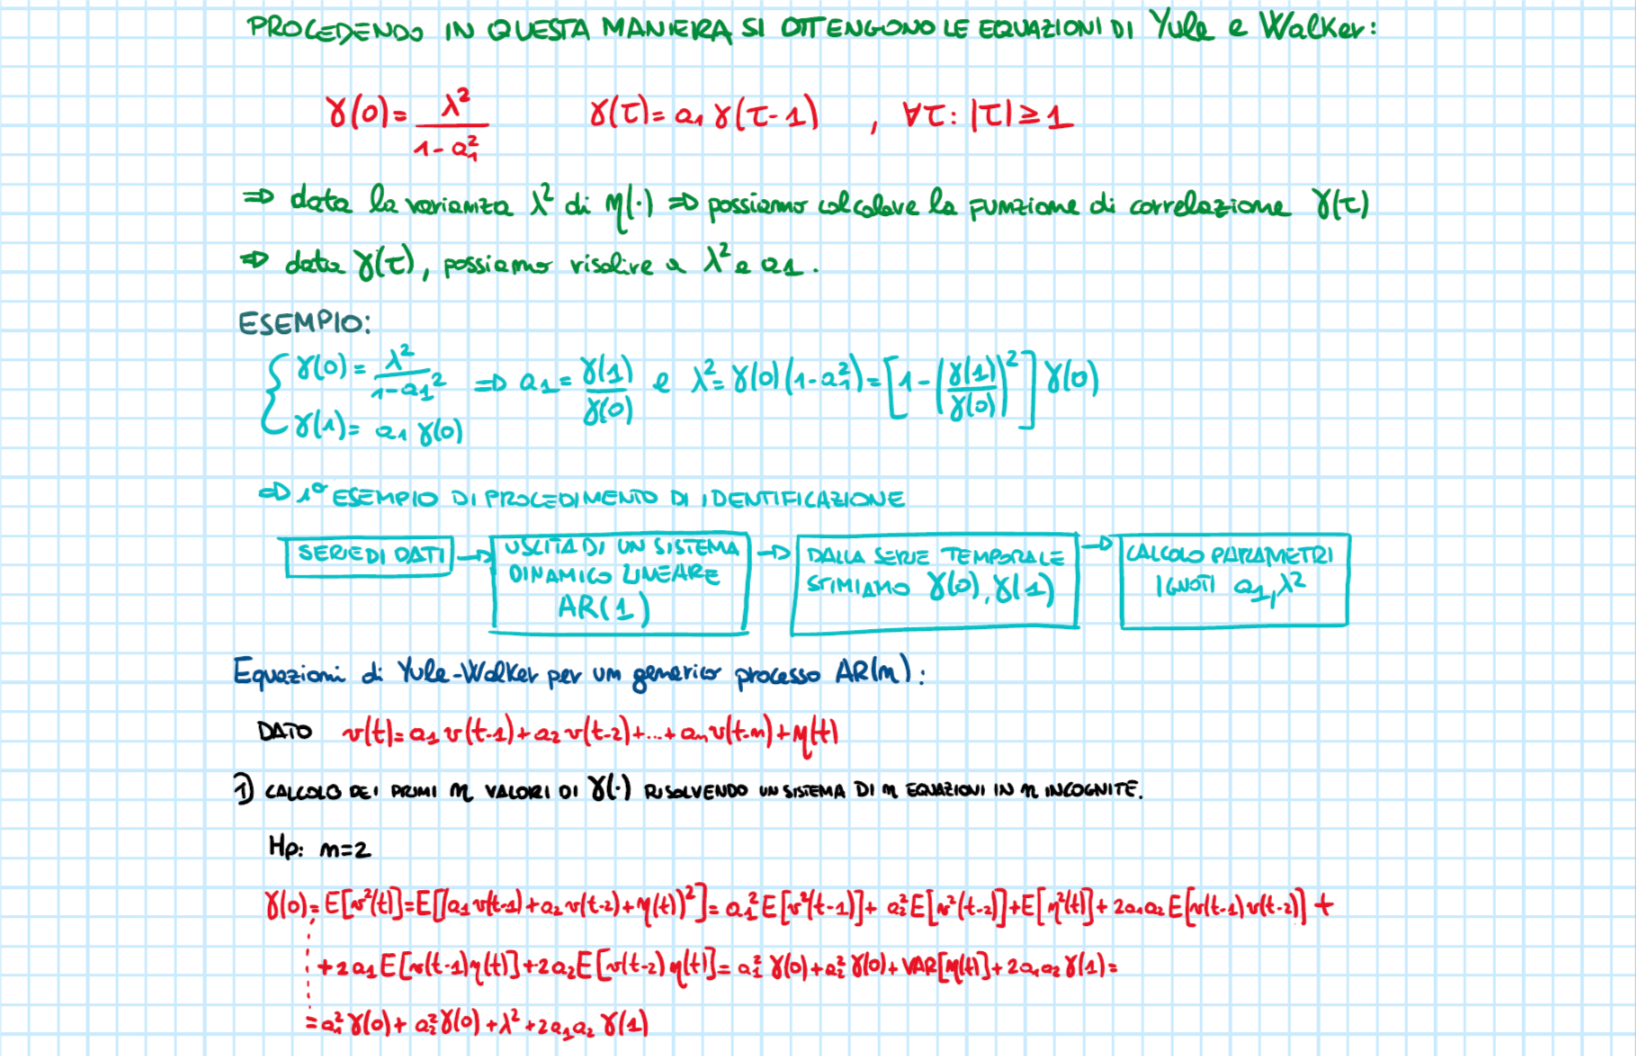 PROCEDENDO IN QUESTA MANIERA SI OTTENGONO LE EQUAZIONI DI Yule e Walker:
γ(0) = λ² / (1 - a₁²)    γ(τ) = a₁ γ(τ-1)    , ∀τ: |τ| ≥ 1
⇒ data la varianza λ² di η(·) ⇒ possiamo calcolare la funzione di correlazione γ(τ)
⇒ data γ(τ), possiamo risalire a λ² e a₁.
ESEMPIO:
{ γ(0) = λ² / (1 - a₁²)
γ(1) = a₁ γ(0)
⇒ a₁ = γ(1)/γ(0) e λ² = γ(0)(1 - a₁²) = [1 - (γ(1)/γ(0))²] γ(0)
⇒ 1° ESEMPIO DI PROCEDIMENTO DI IDENTIFICAZIONE
SERIE DI DATI →
USCITA DI UN SISTEMA
DINAMICO LINEARE
AR(1)
→ DALLA SERIE TEMPORALE
STIMIAMO γ(0), γ(1)
→ CALCOLO PARAMETRI
IGNOTI a₁, λ²
Equazioni di Yule-Walker per un generico processo AR(n):
DATO v(t) = a₁ v(t-1) + a₂ v(t-2) + ... + aₙ v(t-n) + η(t)
1) CALCOLO DEI PRIMI n VALORI DI γ(·) RISOLVENDO UN SISTEMA DI n EQUAZIONI IN n INCOGNITE.
Hp: n=2
γ(0) = E[v²(t)] = E[(a₁ v(t-1) + a₂ v(t-2) + η(t))²] = a₁² E[v²(t-1)] + a₂² E[v²(t-2)] + E[η²(t)] + 2a₁a₂ E[v(t-1) v(t-2)] +
+ 2a₁ E[v(t-1) η(t)] + 2a₂ E[v(t-2) η(t)] = a₁² γ(0) + a₂² γ(0) + VAR[η(t)] + 2a₁a₂ γ(1) =
= a₁² γ(0) + a₂² γ(0) + λ² + 2a₁a₂ γ(1)